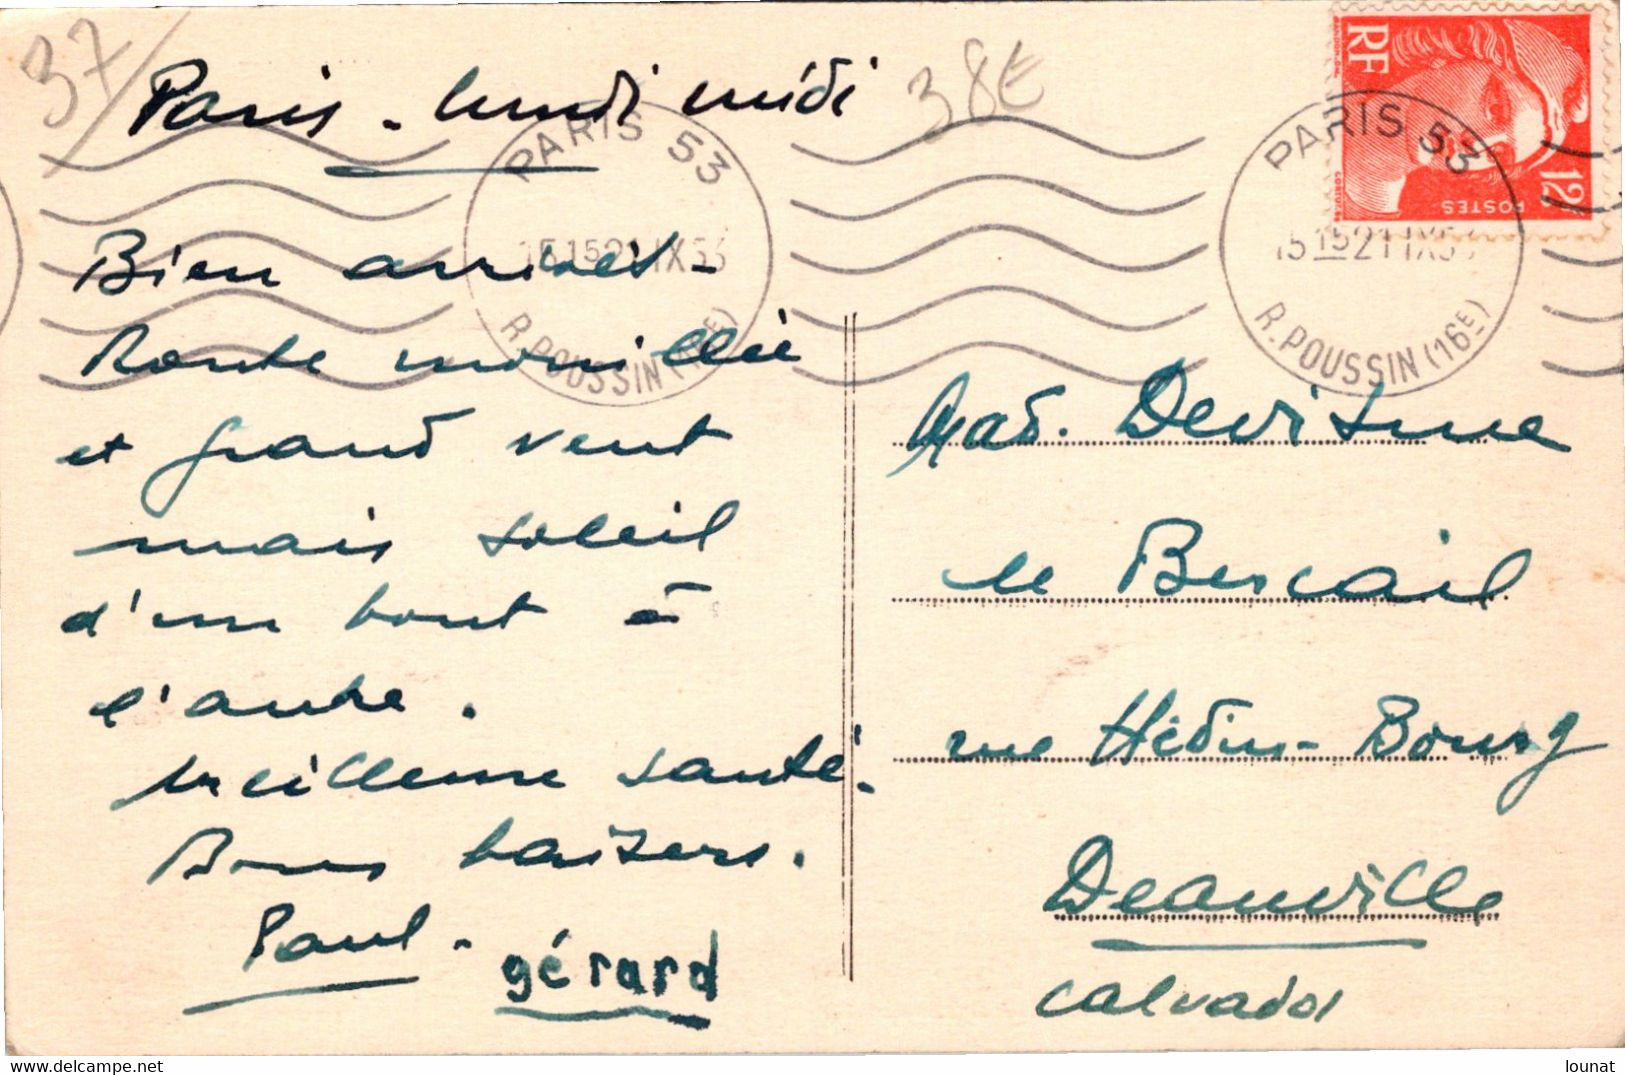 37/
Paris - lundi midi
38€
RF
POSTES
12F
PARIS 53
15 15 21 IX 53
R. POUSSIN (16E)
PARIS 53
15 15 21 IX 53
R. POUSSIN (16E)
Bien arrivés -
Route mouillée
et grand vent
mais soleil
d'un bout à
l'autre.
Meilleure santé.
Bons baisers.
Paul -
gérard
Mad. Devisme
le Bercail
rue Hédin-Bourg
Deauville
calvados
lounat